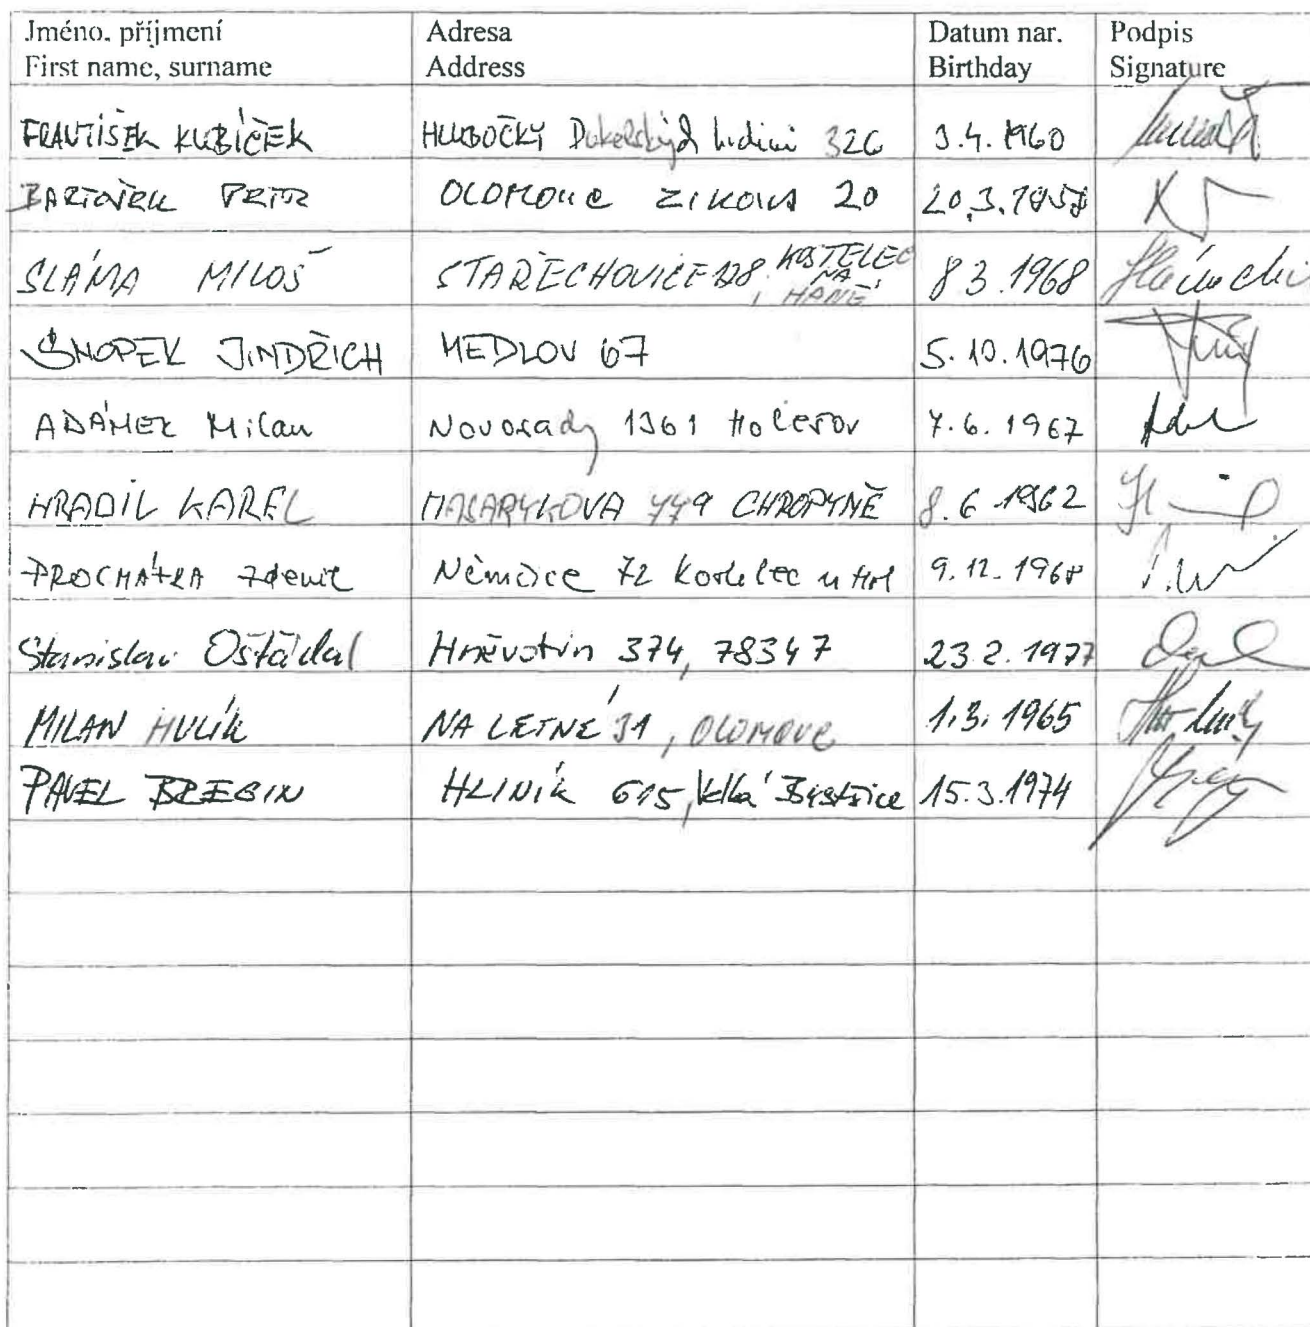 Jméno, příjmení Adresa Datum nar. Podpis
First name, surname Address Birthday Signature
FRANTIŠEK KUBÍČEK HLUBOČKY Dukelských hrdinů 326 3.4.1960
BARTOŠEK PETR OLOMOUC ZIKOVA 20 20.3.1958
SLÁMA MILOŠ STAŘECHOVICE 128, KOSTELEC NA HANÉ 8 3 1968
SNOPEK JINDŘICH MEDLOV 67 5.10.1976
ADÁMEK Milan Novosady 1361 Holešov 7.6.1967
HRADIL KAREL MASARYKOVA 779 CHROPYNĚ 8.6 1962
PROCHÁZKA Zdeněk Němčice 72 Kostelec u Hol 9.12.1968
Stanislav Ošťádal Hněvotín 374, 78347 23 2.1977
MILAN HULÍK NA LETNÉ 31, OLOMOUC 1.3.1965
PAVEL BŘEBIN HLINÍK 615, Velká Bystřice 15.3.1974